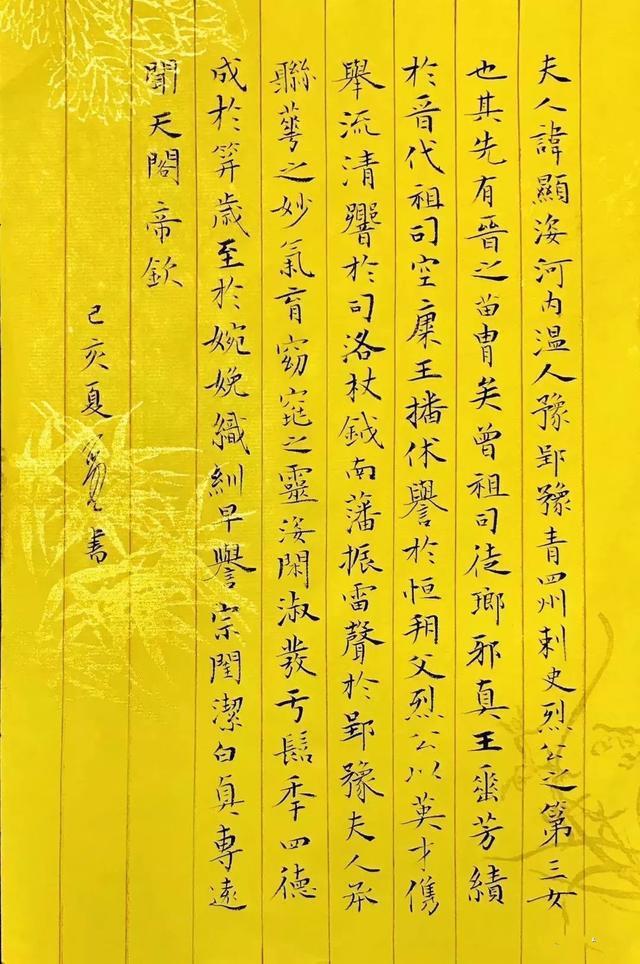 夫人諱顯姿河内温人豫郢豫青四州刺史烈公之第三女
也其先有晉之苗胄矣曾祖司徒瑯邪真王垂芳績
於晉代祖司空康王播休譽於恒朔父烈公以英才儁
舉流清響於司洛杖鉞南藩振雷聲於郢豫夫人承
聯華之妙氣育窈窕之靈姿閑淑發于髫秊四德
成於笄歲至於婉娩織紃早譽宗閨潔白貞專遠
聞天閣帝欽
己亥夏书